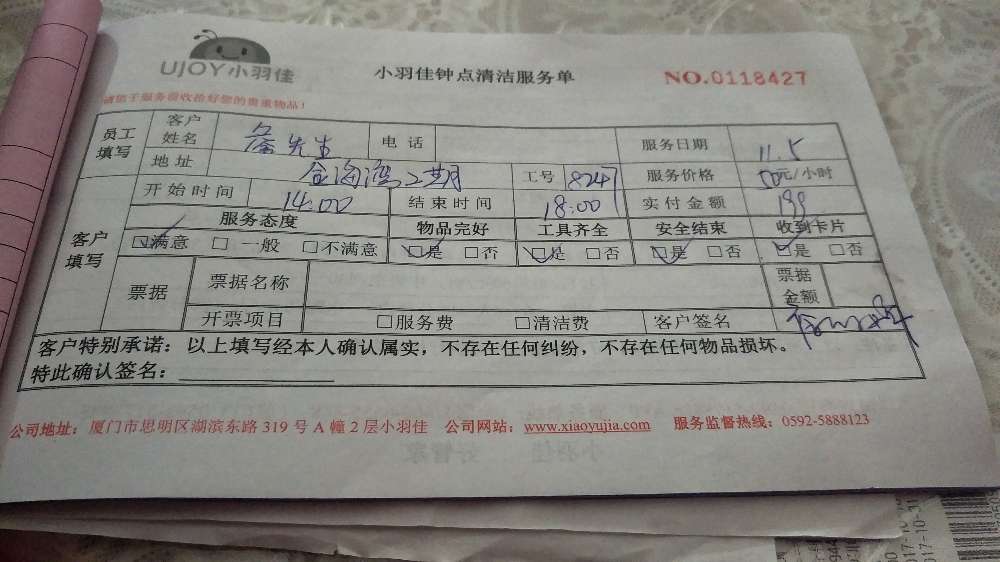 UJOY小羽佳 小羽佳钟点清洁服务单 NO.0118427
请您于服务前收拾好您的贵重物品！
员工填写 客户姓名 先生 电话 服务日期 11.5
地址 金海湾二期 工号 8247 服务价格 50元/小时
开始时间 14:00 结束时间 18:00 实付金额 199
客户填写 服务态度 物品完好 工具齐全 安全结束 收到卡片
☑满意 □一般 □不满意 ☑是 □否 ☑是 □否 ☑是 □否 ☑是 □否
票据 票据名称 票据金额
开票项目 □服务费 □清洁费 客户签名
客户特别承诺：以上填写经本人确认属实，不存在任何纠纷，不存在任何物品损坏。
特此确认签名：
公司地址：厦门市思明区湖滨东路319号A幢2层小羽佳 公司网站：www.xiaoyujia.com 服务监督热线：0592-5888123